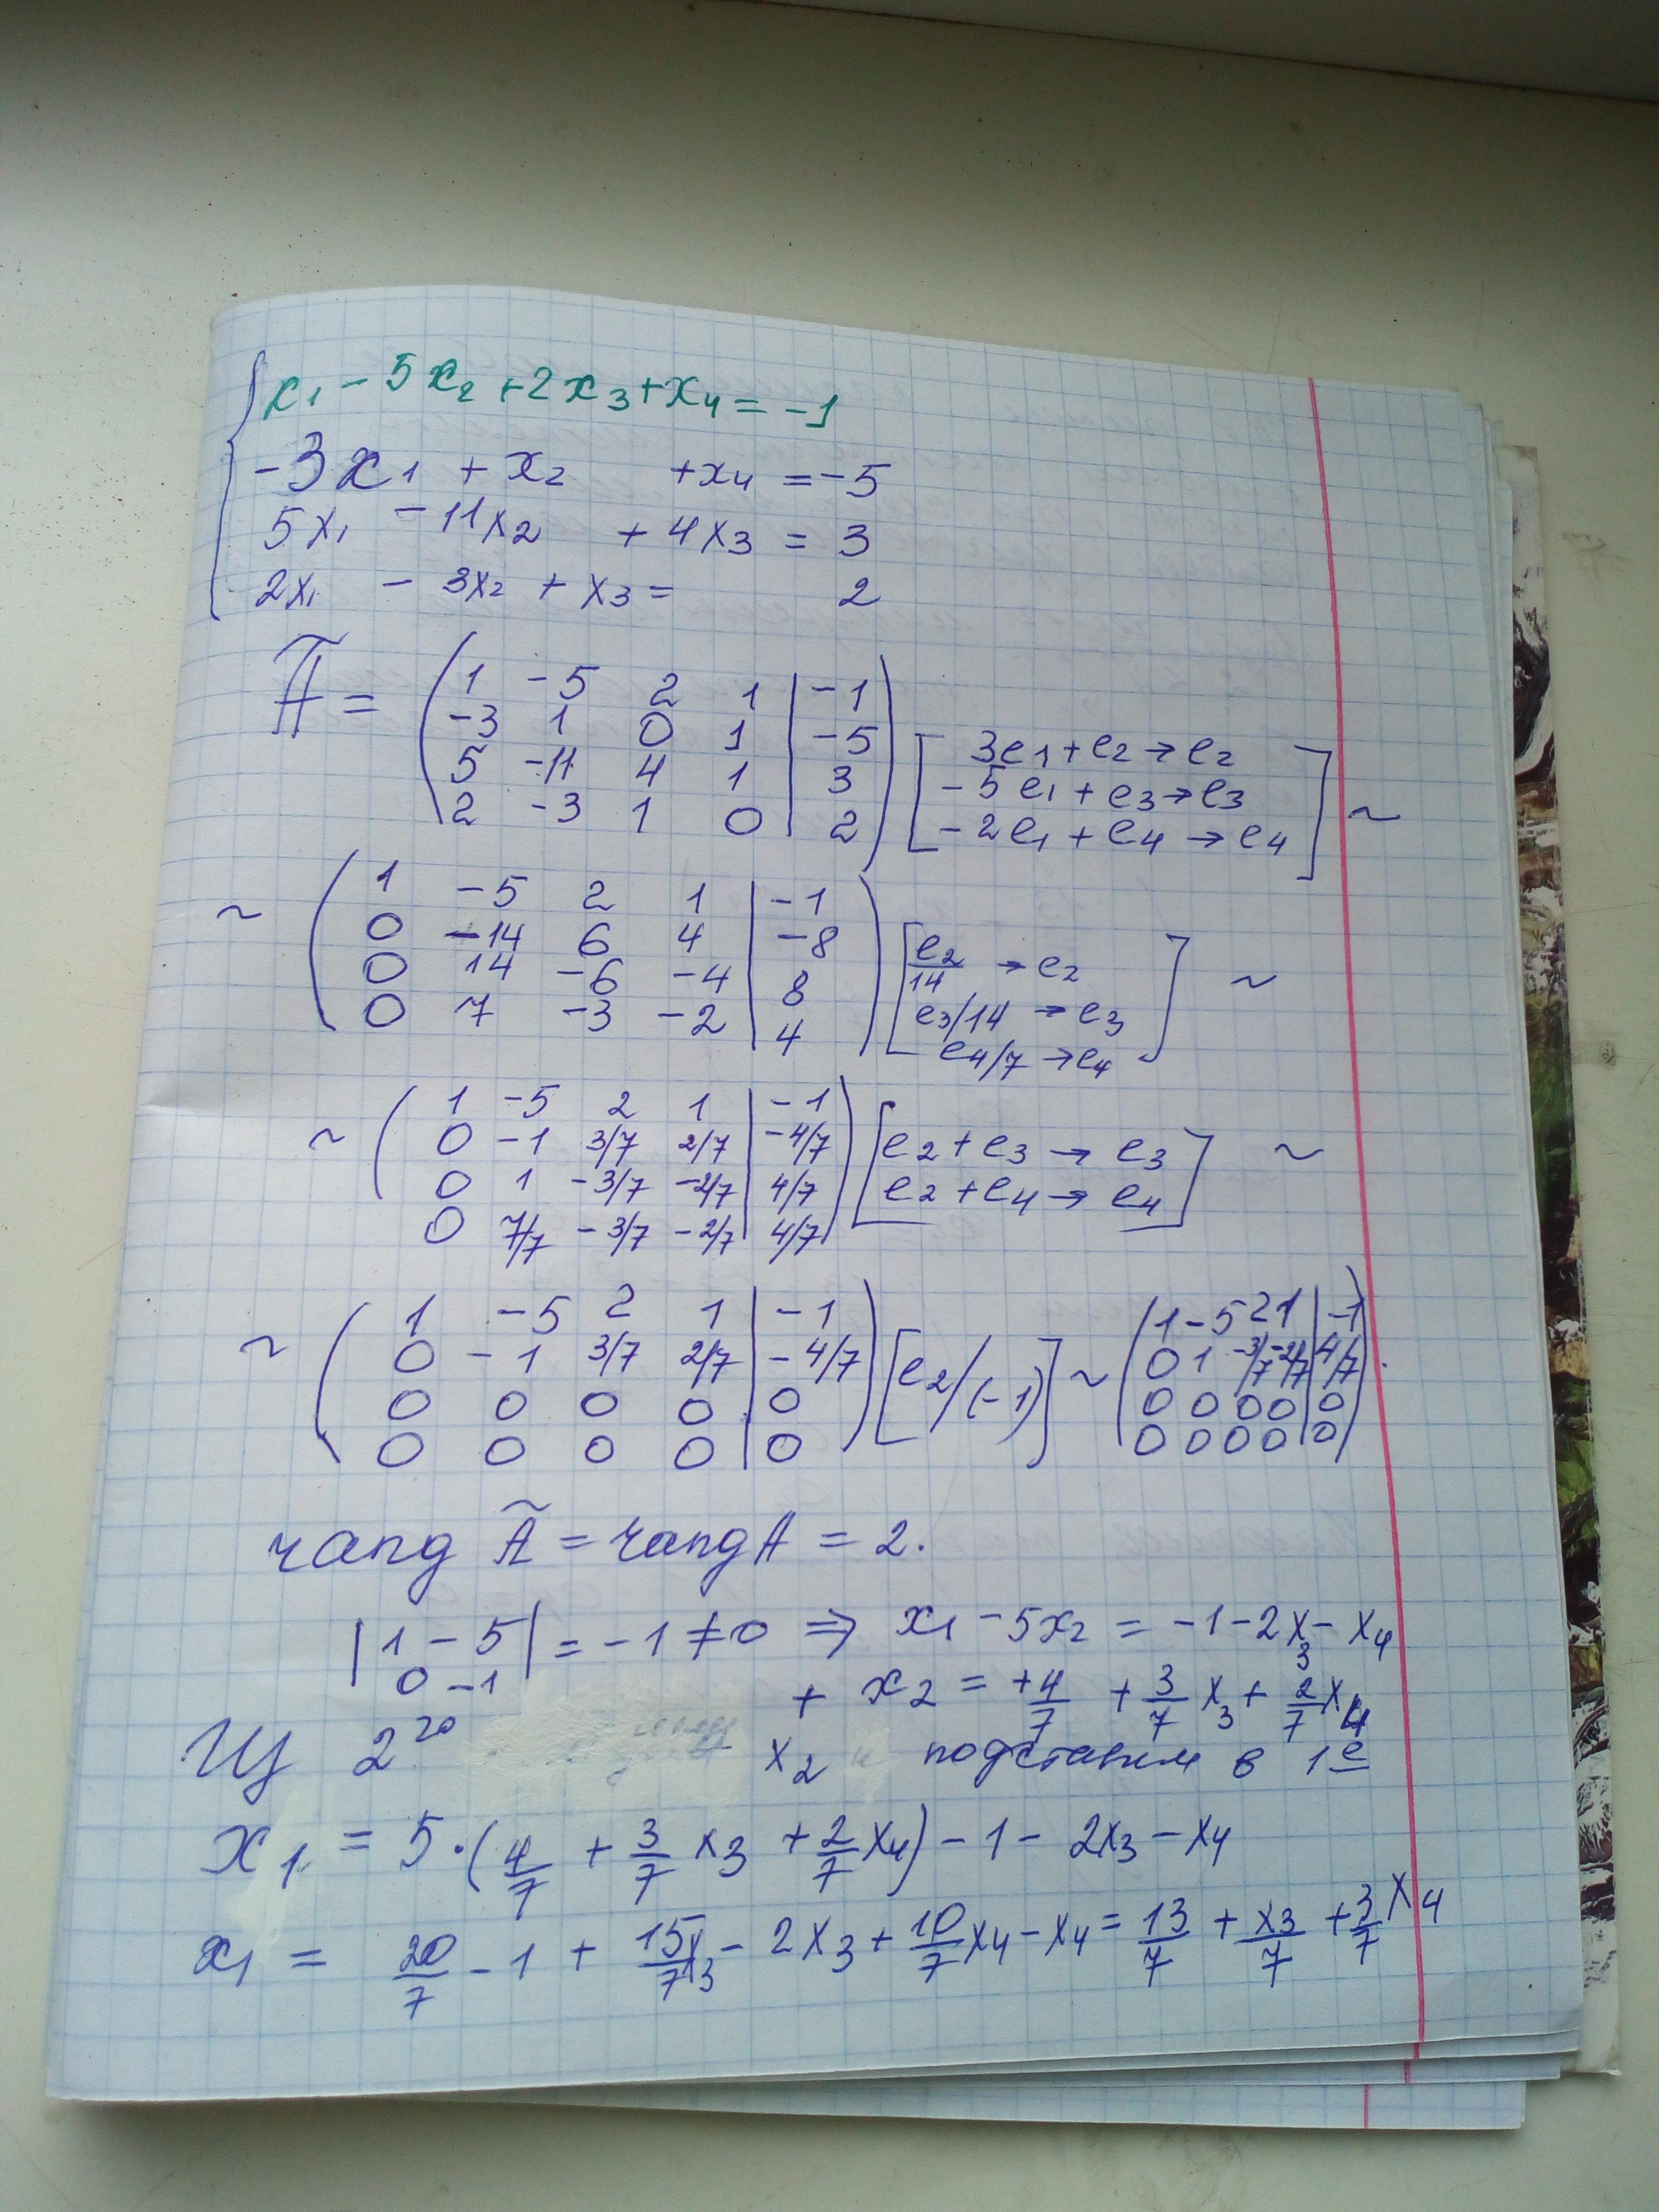 x₁ - 5x₂ + 2x₃ + x₄ = -1
-3x₁ + x₂ + x₄ = -5
5x₁ - 11x₂ + 4x₃ = 3
2x₁ - 3x₂ + x₃ = 2
Ã =
1 -5 2 1 | -1
-3 1 0 1 | -5
5 -11 4 1 | 3
2 -3 1 0 | 2
[3e₁ + e₂ → e₂
-5e₁ + e₃ → e₃
-2e₁ + e₄ → e₄] ~
~
1 -5 2 1 | -1
0 -14 6 4 | -8
0 14 -6 -4 | 8
0 7 -3 -2 | 4
[e₂/14 → e₂
e₃/14 → e₃
e₄/7 → e₄] ~
~
1 -5 2 1 | -1
0 -1 3/7 2/7 | -4/7
0 1 -3/7 -2/7 | 4/7
0 7/7 -3/7 -2/7 | 4/7
[e₂ + e₃ → e₃
e₂ + e₄ → e₄] ~
~
1 -5 2 1 | -1
0 -1 3/7 2/7 | -4/7
0 0 0 0 | 0
0 0 0 0 | 0
[e₂/(-1)] ~
1 -5 2 1 | -1
0 1 -3/7 -2/7 | 4/7
0 0 0 0 | 0
0 0 0 0 | 0
rang Ã = rang A = 2.
|1 -5| = -1 ≠ 0 ⇒ x₁ - 5x₂ = -1 - 2x₃ - x₄
0 -1 + x₂ = +4/7 + 3/7 x₃ + 2/7 x₄
Из 2го x₂ подставим в 1е
x₁ = 5·(4/7 + 3/7 x₃ + 2/7 x₄) - 1 - 2x₃ - x₄
x₁ = 20/7 - 1 + 15/7 x₃ - 2x₃ + 10/7 x₄ - x₄ = 13/7 + x₃/7 + 3/7 x₄